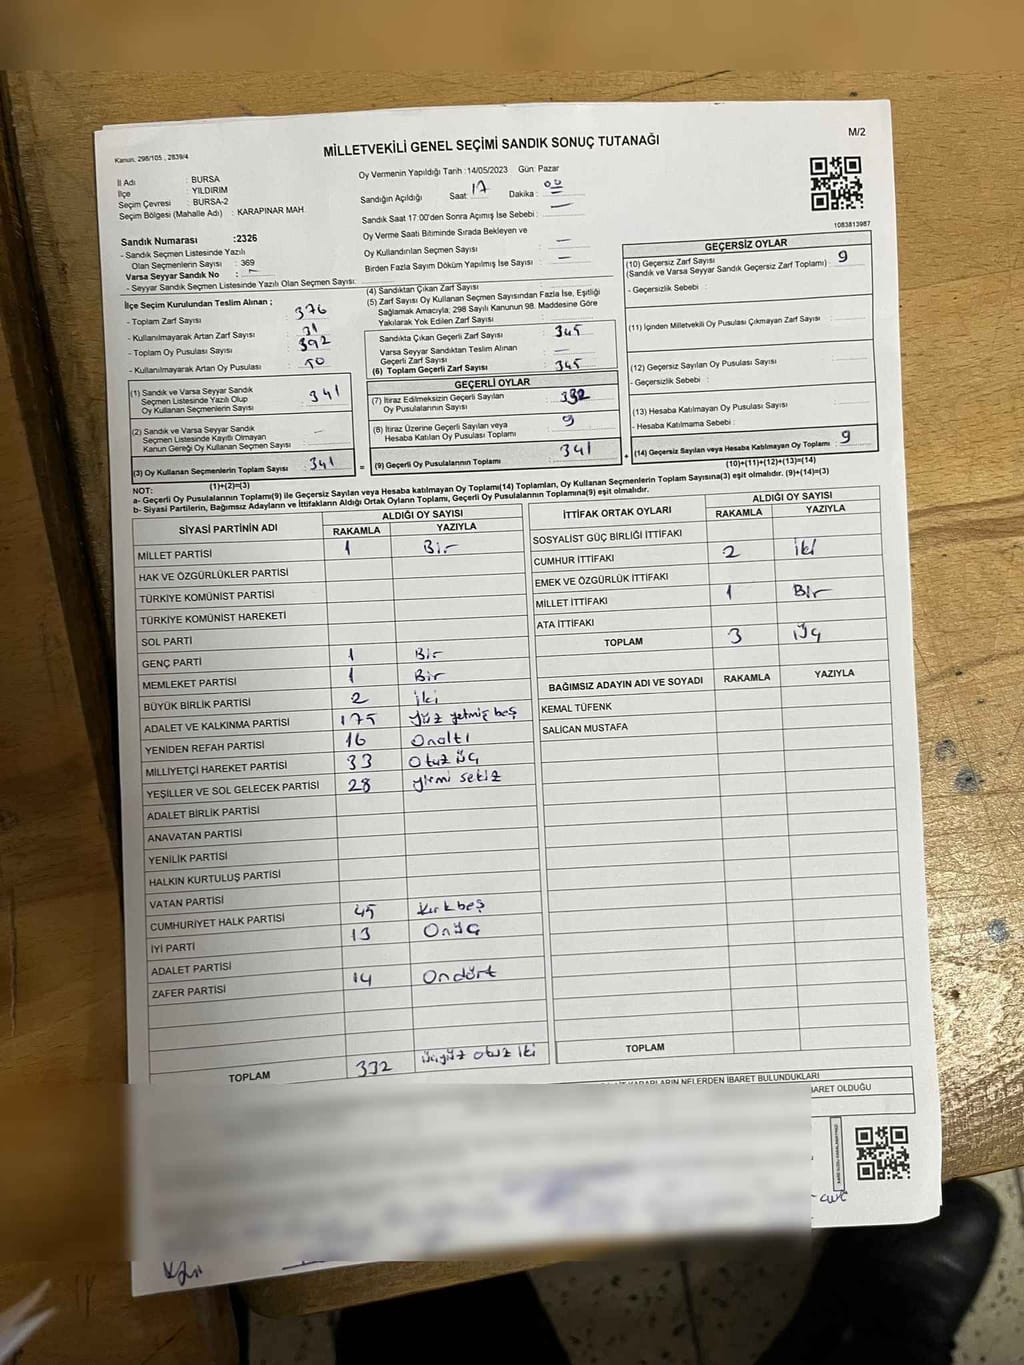 M/2
Kanun. 298/105 , 2839/4
MİLLETVEKİLİ GENEL SEÇİMİ SANDIK SONUÇ TUTANAĞI
İl Adı : BURSA
İlçe : YILDIRIM
Seçim Çevresi : BURSA-2
Seçim Bölgesi (Mahalle Adı) : KARAPINAR MAH.
Sandık Numarası :2326
- Sandık Seçmen Listesinde Yazılı
Olan Seçmenlerin Sayısı : 369
Varsa Seyyar Sandık No : -
- Seyyar Sandık Seçmen Listesinde Yazılı Olan Seçmen Sayısı:
İlçe Seçim Kurulundan Teslim Alınan ;
- Toplam Zarf Sayısı : 376
- Kullanılmayarak Artan Zarf Sayısı : 31
- Toplam Oy Pusulası Sayısı : 392
- Kullanılmayarak Artan Oy Pusulası : 50
(1) Sandık ve Varsa Seyyar Sandık
Seçmen Listesinde Yazılı Olup
Oy Kullanan Seçmenlerin Sayısı : 341
(2) Sandık ve Varsa Seyyar Sandık
Seçmen Listesinde Kayıtlı Olmayan
Kanun Gereği Oy Kullanan Seçmen Sayısı : -
(3) Oy Kullanan Seçmenlerin Toplam Sayısı : 341
(1)+(2)=(3)
Oy Vermenin Yapıldığı Tarih :14/05/2023 Gün: Pazar
Sandığın Açıldığı Saat : 17 Dakika : 00
Sandık Saat 17:00'den Sonra Açımış İse Sebebi : -
Oy Verme Saati Bitiminde Sırada Bekleyen ve
Oy Kullandırılan Seçmen Sayısı : -
Birden Fazla Sayım Döküm Yapılmış İse Sayısı : -
(4) Sandıktan Çıkan Zarf Sayısı :
(5) Zarf Sayısı Oy Kullanan Seçmen Sayısından Fazla İse, Eşitliği
Sağlamak Amacıyla; 298 Sayılı Kanunun 98. Maddesine Göre
Yakılarak Yok Edilen Zarf Sayısı :
Sandıkta Çıkan Geçerli Zarf Sayısı : 345
Varsa Seyyar Sandıktan Teslim Alınan
Geçerli Zarf Sayısı : -
(6) Toplam Geçerli Zarf Sayısı : 345
GEÇERLİ OYLAR
(7) İtiraz Edilmeksizin Geçerli Sayılan
Oy Pusulalarının Sayısı : 332
(8) İtiraz Üzerine Geçerli Sayılan veya
Hesaba Katılan Oy Pusulası Toplamı : 9
= (9) Geçerli Oy Pusulalarının Toplamı : 341
1083813987
GEÇERSİZ OYLAR
(10) Geçersiz Zarf Sayısı
(Sandık ve Varsa Seyyar Sandık Geçersiz Zarf Toplamı) : 9
- Geçersizlik Sebebi :
(11) İçinden Milletvekili Oy Pusulası Çıkmayan Zarf Sayısı :
(12) Geçersiz Sayılan Oy Pusulası Sayısı :
- Geçersizlik Sebebi :
(13) Hesaba Katılmayan Oy Pusulası Sayısı :
- Hesaba Katılmama Sebebi :
+ (14) Geçersiz Sayılan veya Hesaba Katılmayan Oy Toplamı : 9
(10)+(11)+(12)+(13)=(14)
NOT:
a- Geçerli Oy Pusulalarının Toplamı(9) ile Geçersiz Sayılan veya Hesaba katılmayan Oy Toplamı(14) Toplamları, Oy Kullanan Seçmenlerin Toplam Sayısına(3) eşit olmalıdır. (9)+(14)=(3)
b- Siyasi Partilerin, Bağımsız Adayların ve İttifakların Aldığı Ortak Oyların Toplamı, Geçerli Oy Pusulalarının Toplamına(9) eşit olmalıdır.
SİYASİ PARTİNİN ADI ALDIĞI OY SAYISI
RAKAMLA YAZIYLA
MİLLET PARTİSİ 1 Bir
HAK VE ÖZGÜRLÜKLER PARTİSİ
TÜRKİYE KOMÜNİST PARTİSİ
TÜRKİYE KOMÜNİST HAREKETİ
SOL PARTİ
GENÇ PARTİ 1 Bir
MEMLEKET PARTİSİ 1 Bir
BÜYÜK BİRLİK PARTİSİ 2 iki
ADALET VE KALKINMA PARTİSİ 175 yüz yetmiş beş
YENİDEN REFAH PARTİSİ 16 Onaltı
MİLLİYETÇİ HAREKET PARTİSİ 33 Otuz üç
YEŞİLLER VE SOL GELECEK PARTİSİ 28 yirmi sekiz
ADALET BİRLİK PARTİSİ
ANAVATAN PARTİSİ
YENİLİK PARTİSİ
HALKIN KURTULUŞ PARTİSİ
VATAN PARTİSİ
CUMHURİYET HALK PARTİSİ 45 Kırkbeş
İYİ PARTİ 13 Onüç
ADALET PARTİSİ
ZAFER PARTİSİ 14 Ondört
TOPLAM 332 üçyüz otuz iki
İTTİFAK ORTAK OYLARI ALDIĞI OY SAYISI
RAKAMLA YAZIYLA
SOSYALİST GÜÇ BİRLİĞİ İTTİFAKI
CUMHUR İTTİFAKI 2 iki
EMEK VE ÖZGÜRLÜK İTTİFAKI
MİLLET İTTİFAKI 1 Bir
ATA İTTİFAKI
TOPLAM 3 üç
BAĞIMSIZ ADAYIN ADI VE SOYADI RAKAMLA YAZIYLA
KEMAL TÜFENK
SALİCAN MUSTAFA
TOPLAM
KARARLARIN NELERDEN İBARET BULUNDUKLARI
BARET OLDUĞU